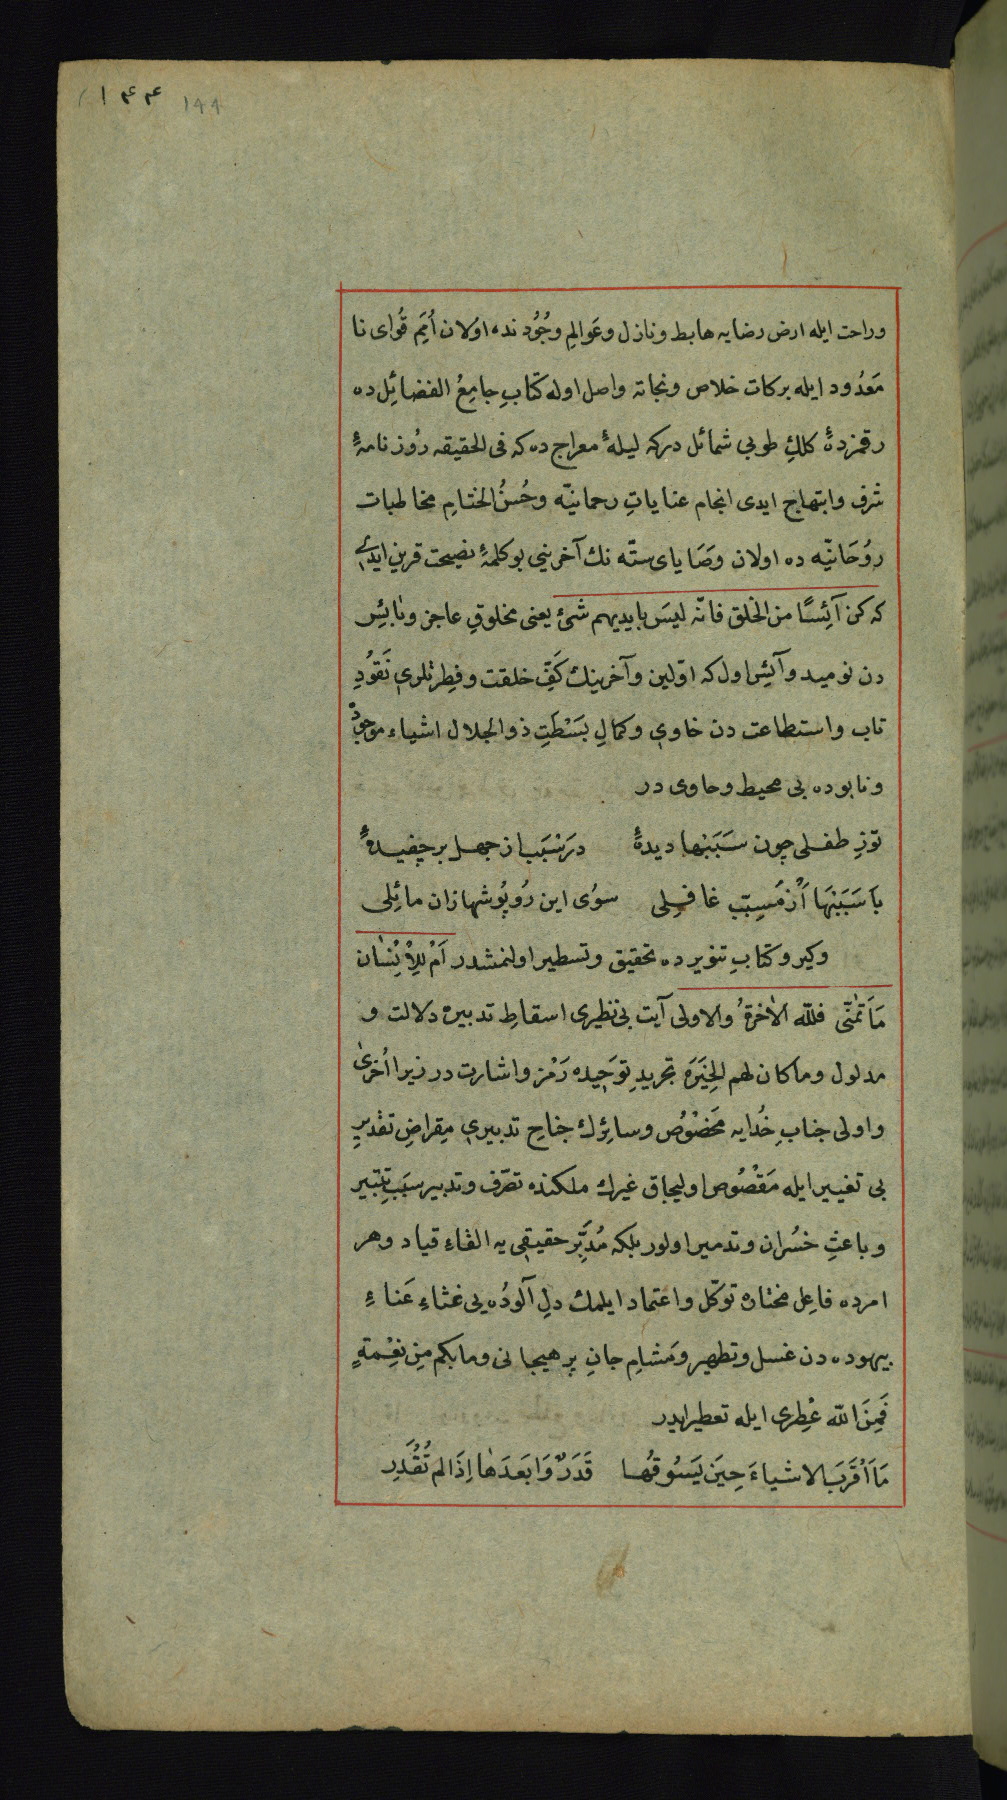 ۱۴۴ ۱۴۴
وراحت ایله ارض رضایه هابط ونازل وعَوالِمِ وجُوُدنده اولان اُمَمِ قُوای نا
مَعدُود ایله برکات خلاص ونجاته واصل اوله کتابِ جامِعُ الفضائِل ده
رقمزدهٔ کلكِ طوبی شمائل درکه لیلهٔ معراج ده که فی الحقیقه رُوزنامهٔ
شرف وابتهاج ایدی انجام عنایاتِ رحمانیّه وحُسنُ الختامِ مخاطبات
روُحَانیّه ده اولان وصَایای ستّه نك آخرینی بو کلمهٔ نصیحت قرین ایدی
که کن آئِسًا من الخلق فانّه لیسَ بایدیهم شیٔ یعنی مخلوقِ عاجز وبائِس
دن نومید وآئِس اول که اوّلین وآخرینك کَفِّ خلقت وفِطرتلری نَقوُدِ
تاب واستطاعت دن خاوی وکمالِ بَسْطَتِ ذوالجلال اشیاء موجوُد
ونابوده یی محیط وحاوی در
توز طفلی چون سَبَبها دیدهٔ درسَبَب از جهل بر چفیدهٔ
باسَبَبهَا اَزْ مُسبّب غافِلی سوُی این رُوپُوشها زان مائِلی
وکیرو کتابِ تنویر ده تحقیق وتسطیر اولنمشدر اَمْ لِلْاِنْسٰان
مَا تَمَنّٰی فللّه الاٰخرةُ والاولی آیت بی نظیری اسقاطِ تدبیره دلالت و
مدلول وماکان لهم الخِیَرَة تجریدِ توحیده رَمْز واشارت در زیرا اُخریٰ
واولی جنابِ خُدایه مَخصُوُص وسائِرك جناحِ تدبیری مِقراضِ تقدیرِ
بی تغییر ایله مَقْصُوُص اولیجاق غیرك ملکنده تصرّف وتدبیر سبَبِ تتبیر
وباعثِ خسُران وتدمیر اولور بلکه مُدَبِّر حقیقی یه القاءِ قیاد وهر
امرده فاعِل مختاره توکّل واعتماد ایلمك دلِ آلوُده یی غثاءِ عَناءِ
بیهوده دن غسل وتطهیر ومَشامِ جانِ پر هیجانی ومابکم مِن نِعْمةٍ
فَمِنَ اللّه عْطِری ایله تعطیر ایدر
مَا اَقْرَبَ الاشیاءَ حِینَ یَسُوقُها قَدَرٌ وَابعَدَهٰا اِذَا لم تُقْدَرِ